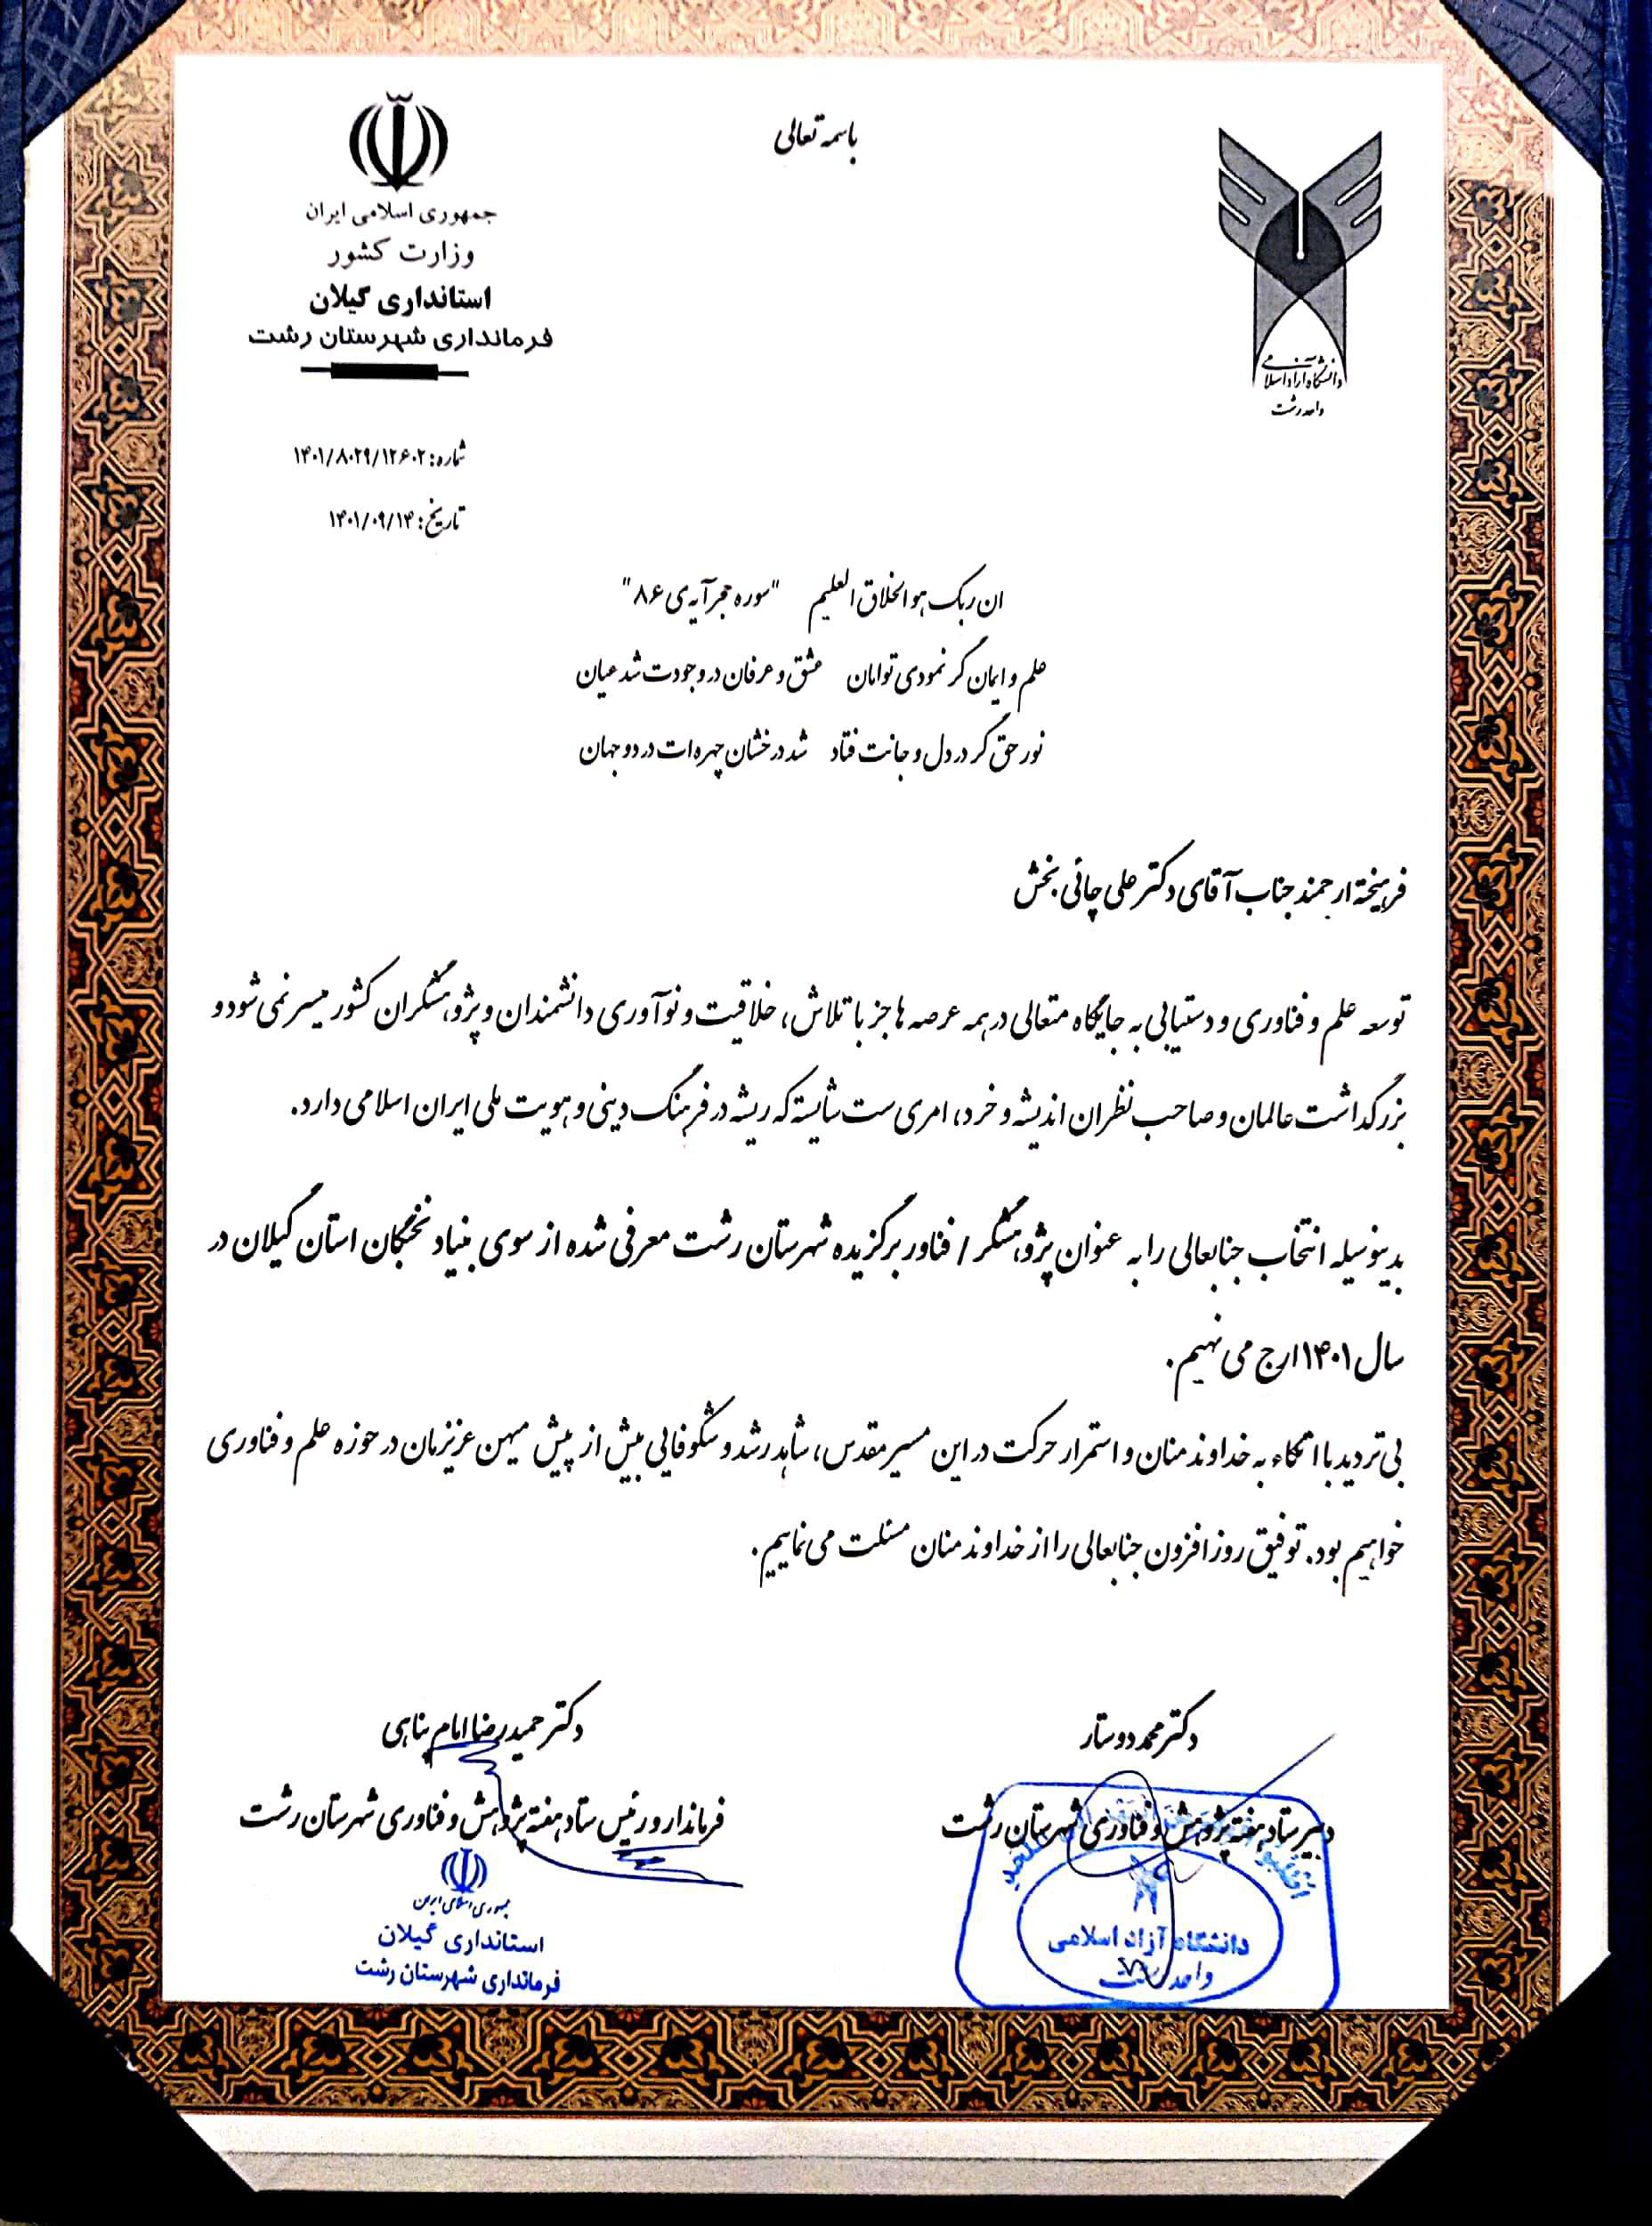 باسمه تعالی
جمهوری اسلامی ایران
وزارت کشور
استانداری گیلان
فرمانداری شهرستان رشت
دانشگاه آزاد اسلامی
واحد رشت
شماره: ۱۴۰۱/۸۰۲۹/۱۲۶۰۲
تاریخ: ۱۴۰۱/۰۹/۱۴
ان ربک هو الخلاق العلیم "سوره حجر آیه ی ۸۶"
علم و ایمان گر نمودی توامان عشق و عرفان در وجودت شد عیان
نور حق گر در دل و جانت فتاد شد درخشان چهره ات در دو جهان
فرهیخته ارجمند جناب آقای دکتر علی چائی بخش
توسعه علم و فناوری و دستیابی به جایگاه متعالی در همه عرصه ها جز با تلاش، خلاقیت و نوآوری دانشمندان و پژوهشگران کشور میسر نمی شود و
بزرگداشت عالمان و صاحب نظران اندیشه و خرد، امری ست شایسته که ریشه در فرهنگ دینی و هویت ملی ایران اسلامی دارد.
بدینوسیله انتخاب جنابعالی را به عنوان پژوهشگر / فناور برگزیده شهرستان رشت معرفی شده از سوی بنیاد نخبگان استان گیلان در
سال ۱۴۰۱ ارج می نهیم.
بی تردید با اتکاء به خداوند منان و استمرار حرکت در این مسیر مقدس، شاهد رشد و شکوفایی بیش از پیش میهن عزیزمان در حوزه علم و فناوری
خواهیم بود. توفیق روز افزون جنابعالی را از خداوند منان مسئلت می نماییم.
دکتر محمد دوستار
دبیر ستاد هفته پژوهش و فناوری شهرستان رشت
دانشگاه آزاد اسلامی
واحد رشت
دکتر حمیدرضا امام پناهی
فرماندار و رئیس ستاد هفته پژوهش و فناوری شهرستان رشت
جمهوری اسلامی ایران
استانداری گیلان
فرمانداری شهرستان رشت